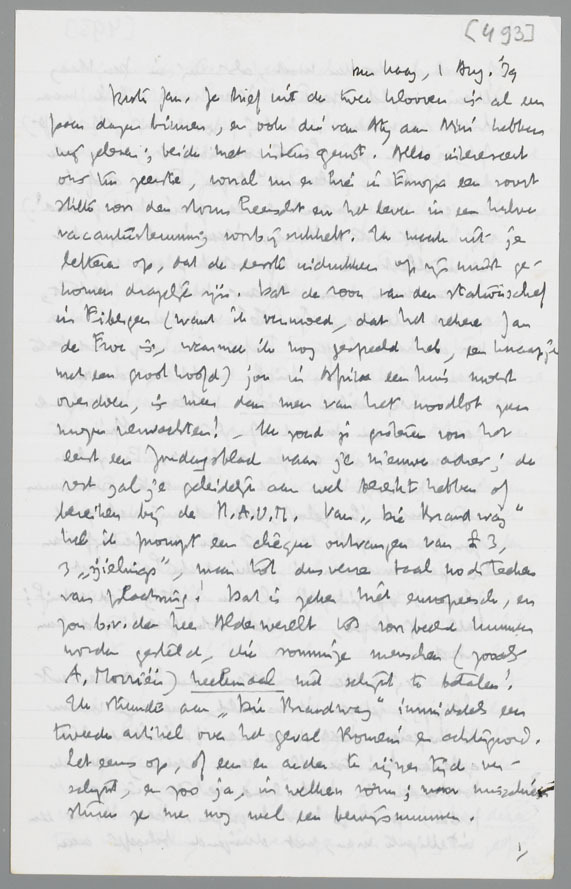 [493]
Den Haag, 1 Aug. '39
Beste Jan. Je brief uit de twee kloven is al een
paar dagen binnen, en ook die van Aty aan Mini hebben
wij gelezen; beide met intens genot. Alles interesseert
ons ten zeerste, vooral nu er hier in Europa een soort
stilte voor den storm heerscht en het leven in een halve
vacantiestemming voorbij sukkelt. Ik maak uit je
brieven op, dat de eerste indrukken op zijn minst ge-
nomen dragelijk zijn. Dat de zoon van den stationschef
in Eibergen (want ik vermoed, dat het zekere Jan
de Froe is, waarmee ik nog gespeeld heb, een knaapje
met een groot hoofd) jou in Afrika een huis moest
overdoen, is meer dan men van het noodlot zou
mogen verwachten! – Ik zond je gisteren voor het
eerst een Zondagsblad naar je nieuwe adres; de
rest zal je geleidelijk aan wel bereikt hebben of
bereiken bij de N.A.U.M. Van „Die Brandwag"
heb ik prompt een chèque ontvangen van £ 3,
3 „sjielings", maar tot dusverre taal noch teeken
van plaatsing! Dat is zeker niet europeesch, en
zou b.v. den heer Alderwerelt tot voorbeeld kunnen
worden gesteld, die sommige menschen (zooals
A. Morriën) heelemaal niet schijnt te betalen!
Ik stuurde aan „Die Brandwag" inmiddels een
tweede artikel over het geval Romein en achtergrond.
Let eens op, of een en ander te zijner tijd ver-
schijnt, en zoo ja, in welken vorm; misschien
sturen ze me nog wel een bewijsnummer.
1)